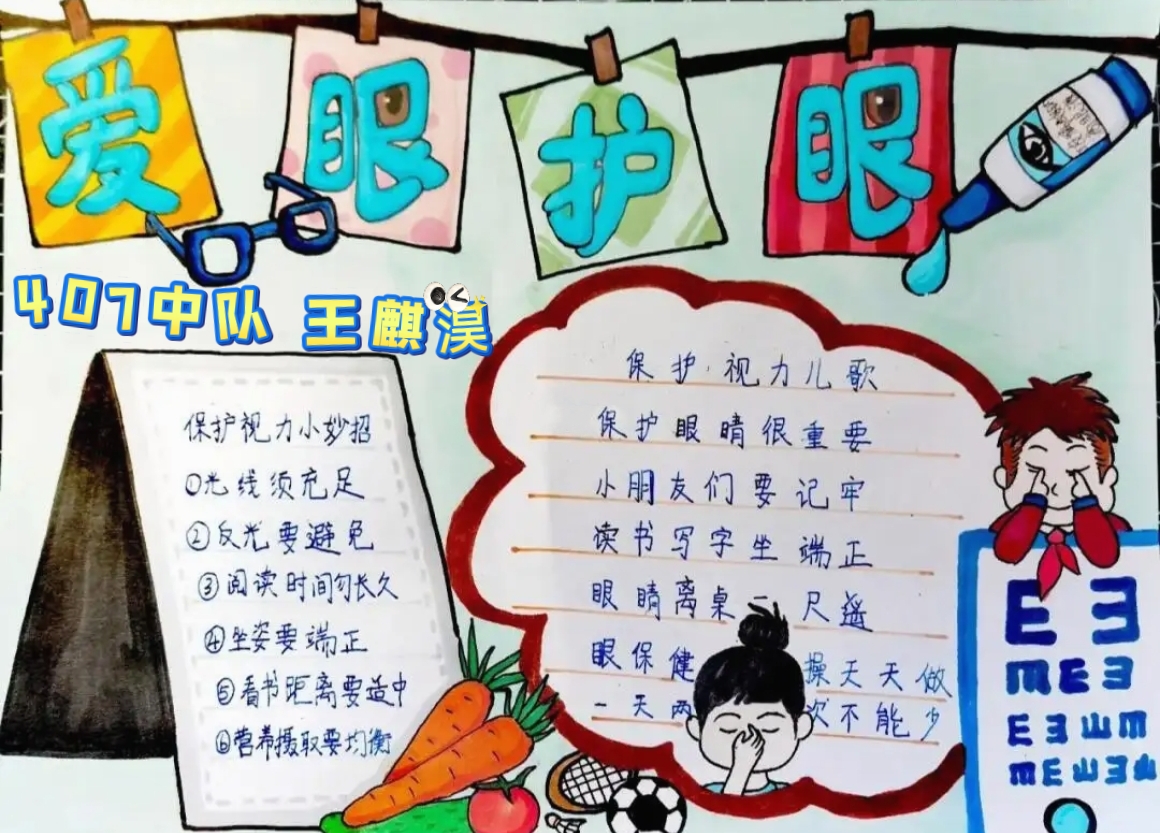 爱眼护眼
407中队 王麒淏
保护视力小妙招
①光线须充足
②反光要避免
③阅读时间勿长久
④坐姿要端正
⑤看书距离要适中
⑥营养摄取要均衡
保护视力儿歌
保护眼睛很重要
小朋友们要记牢
读书写字坐端正
眼睛离桌一尺遥
眼保健操天天做
一天两次不能少